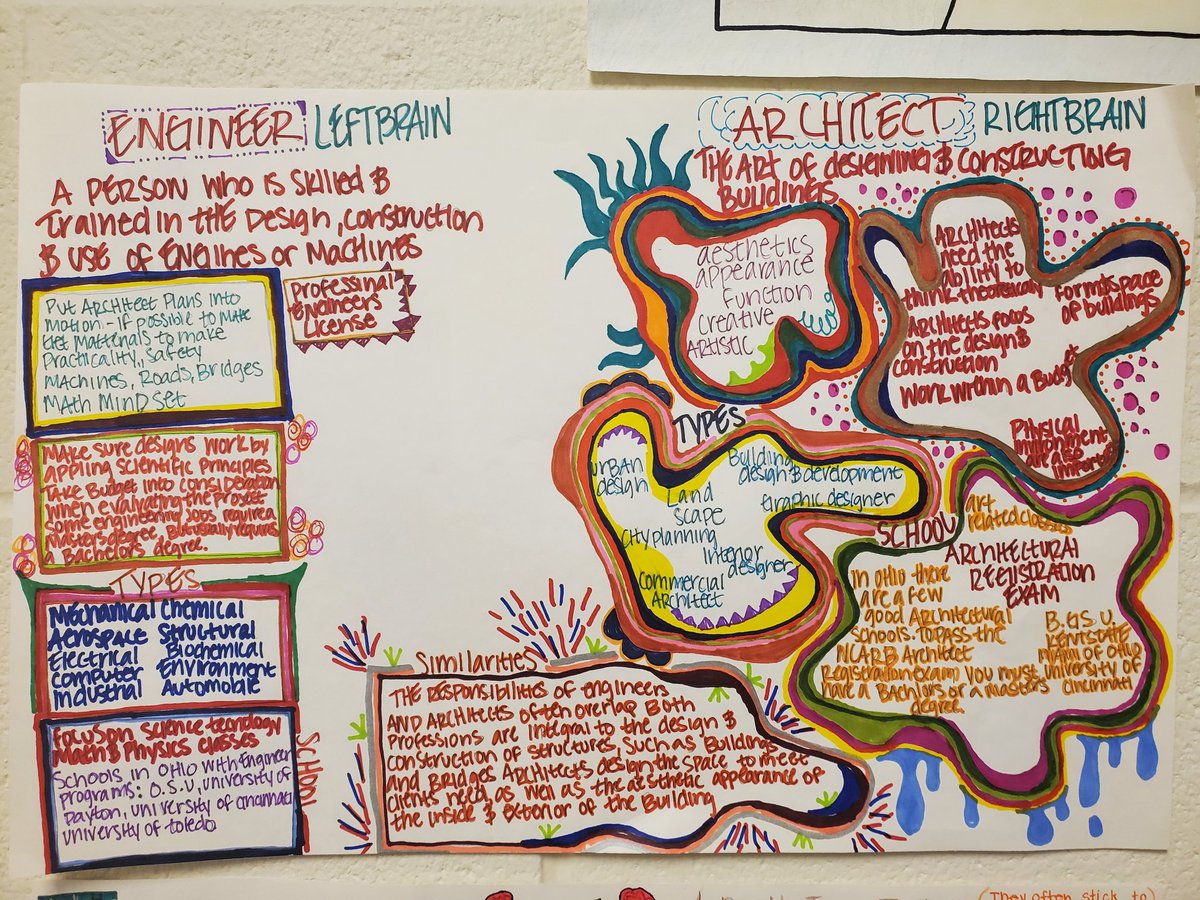 ENGINEER LEFTBRAIN
A PERSON WHO IS SKILLED &
TRAINED IN THE DESIGN, CONSTRUCTION
& USE OF ENGINES OR MACHINES
PUT ARCHITECT PLANS INTO
MOTION - IF POSSIBLE TO MAKE
MATERIALS TO MAKE
PRACTICALITY, SAFETY
MACHINES, ROADS, BRIDGES
MATH MINDSET
Professinal
Engineers
License
MAKE SURE DESIGNS WORK BY
APPLING SCIENTIFIC PRINCIPLES
TAKE BUDGET INTO CONSIDERATION
WHEN EVALUATING THE PROJECT
SOME ENGINEERING JOBS REQUIRE A
MASTERS DEGREE BUT USUALLY REQUIRES
A BACHELORS DEGREE.
TYPES
Mechanical Chemical
Aerospace Structural
Electrical Biochemical
Computer Environment
Industrial Automobile
FOCUS ON SCIENCE
MATH & PHYSICS CLASSES
SCHOOLS IN OHIO WITH ENGINEER
PROGRAMS: O.S.U, UNIVERSITY OF
DAYTON, UNIVERSITY OF
UNIVERSITY OF TOLEDO
SCHOOL
ARCHITECT RIGHTBRAIN
THE ART OF DESIGNING & CONSTRUCTING
BUILDINGS
aesthetics
appearance
function
creative
ARTISTIC
ARCHITECTS
NEED THE
ABILITY TO
THINK THEORETICALLY
FORM & SPACE
OF BUILDINGS
ARCHITECTS FOCUS
ON THE DESIGN &
CONSTRUCTION
WORK WITHIN A BUDGET
PHYSICAL
ARE ALSO
TYPES
URBAN
design
Building
design & development
Graphic designer
Land
scape
City planning
interior
designer
Commercial
Architect
SCHOOL
art
related classes
ARCHITECTURAL
REGISTRATION
EXAM
IN OHIO THERE
ARE A FEW
GOOD ARCHITECTURAL
SCHOOLS. TO PASS THE
NCARB ARCHITECT
REGISTRATION EXAM YOU MUST
HAVE A BACHLORS OR A MASTERS
DEGREE.
B.G.S.U.
KENT STATE
MIAMI OF OHIO
UNIVERSITY OF
CINCINNATI
Similarities
THE RESPONSIBILITIES OF ENGINEERS
AND ARCHITECTS OFTEN OVERLAP BOTH
PROFESSIONS ARE INTEGRAL TO THE DESIGN &
CONSTRUCTION OF STRUCTURES, SUCH AS BUILDINGS
AND BRIDGES ARCHITECTS DESIGN THE SPACE TO MEET
CLIENTS NEED AS WELL AS THE AESTHETIC APPEARANCE OF
THE INSIDE & EXTERIOR OF THE BUILDING
(They often stick to)